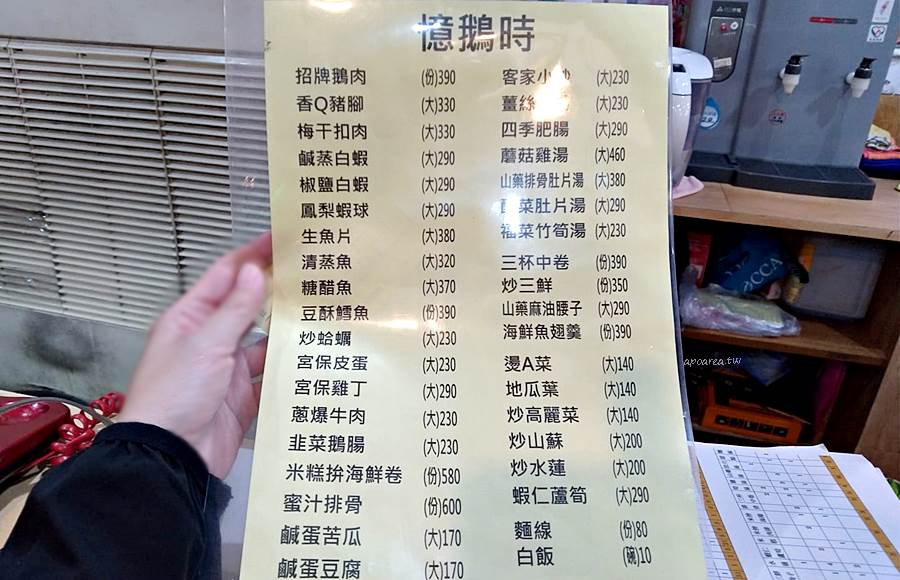 憶鵝時
招牌鵝肉 (份)390
香Q豬腳 (大)330
梅干扣肉 (大)330
鹹蒸白蝦 (大)290
椒鹽白蝦 (大)290
鳳梨蝦球 (大)290
生魚片 (大)380
清蒸魚 (大)320
糖醋魚 (大)370
豆酥鱈魚 (份)390
炒蛤蠣 (大)230
宮保皮蛋 (大)230
宮保雞丁 (大)290
蔥爆牛肉 (大)230
韭菜鵝腸 (大)230
米糕拚海鮮卷 (份)580
蜜汁排骨 (份)600
鹹蛋苦瓜 (大)170
鹹蛋豆腐 (大)170
客家小炒 (大)230
薑絲 (大)230
四季肥腸 (大)290
蘑菇雞湯 (大)460
山藥排骨肚片湯 (大)380
菜肚片湯 (大)290
福菜竹筍湯 (大)230
三杯中卷 (份)390
炒三鮮 (份)350
山藥麻油腰子 (大)290
海鮮魚翅羹 (份)390
燙A菜 (大)140
地瓜葉 (大)140
炒高麗菜 (大)140
炒山蘇 (大)200
炒水蓮 (大)200
蝦仁蘆筍 (大)290
麵線 (份)80
白飯 (碗)10
apoarea.tw